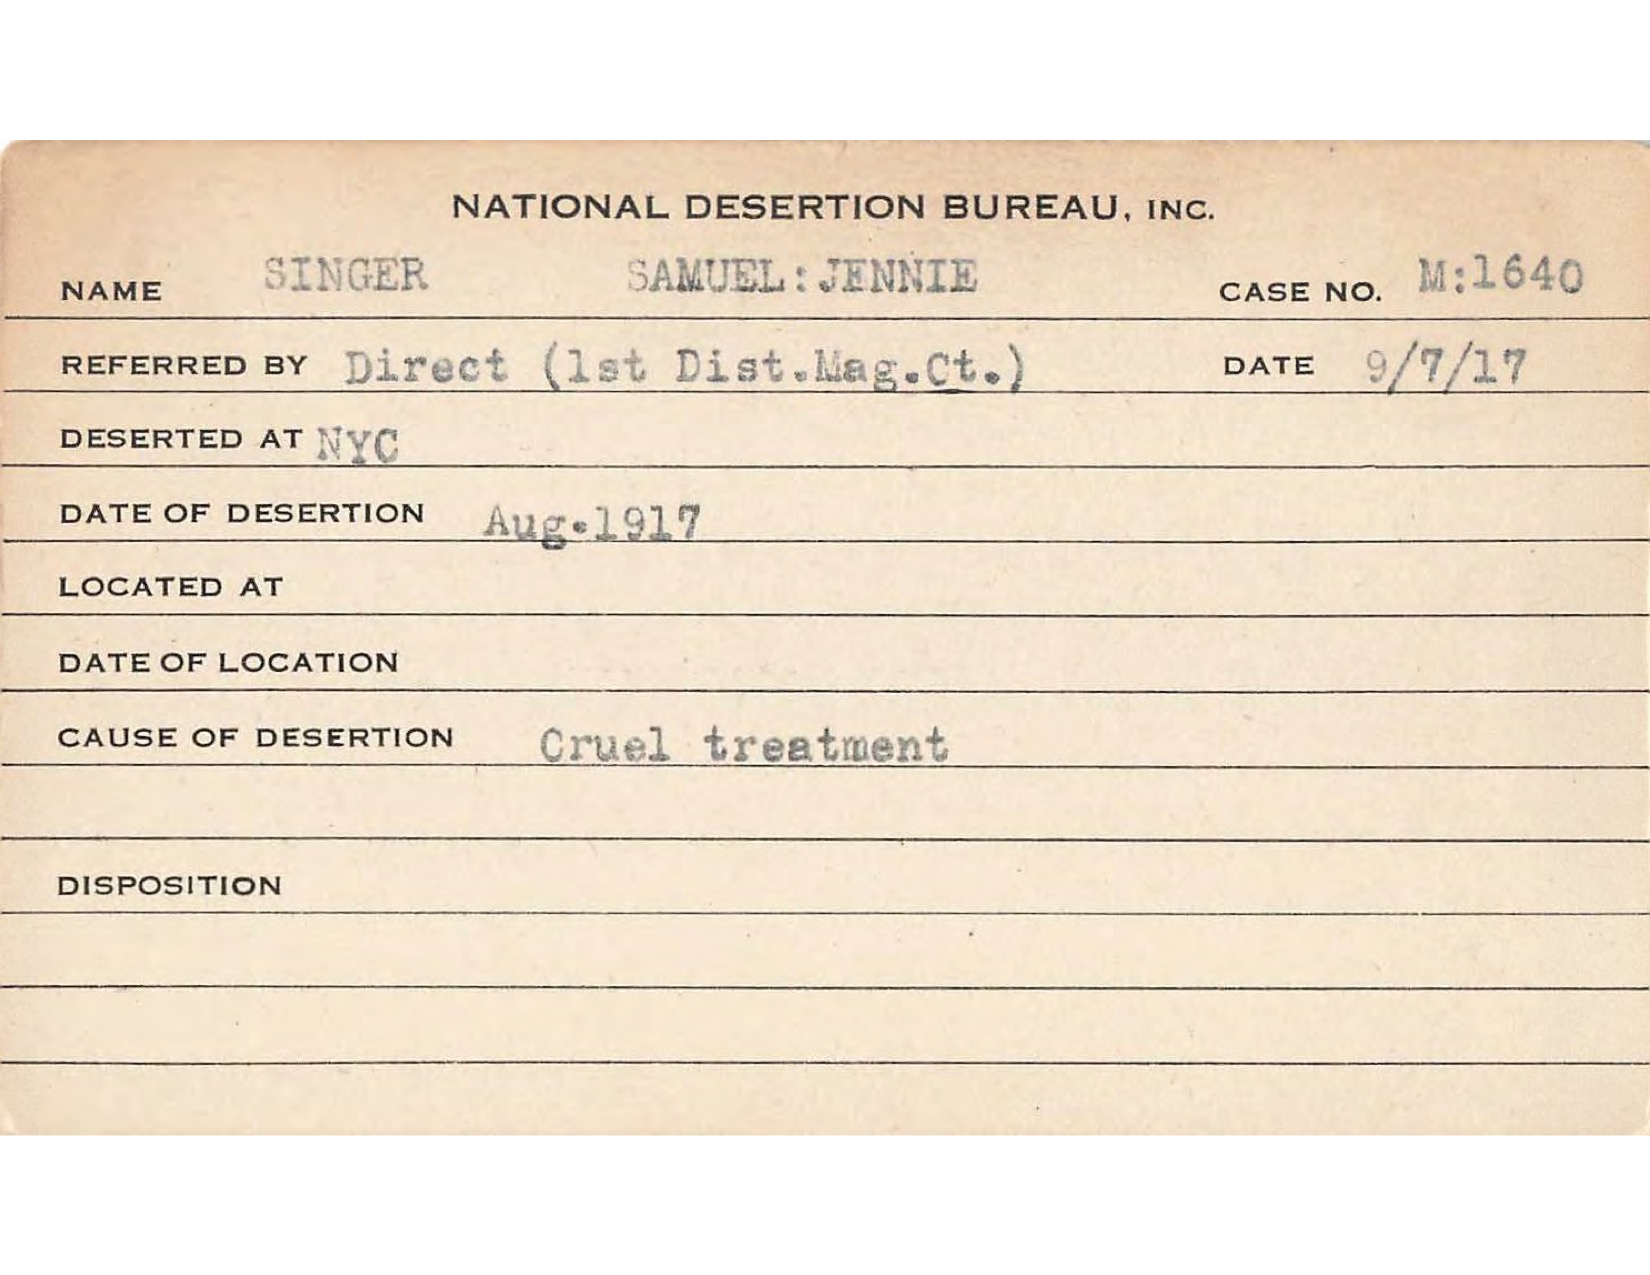 NATIONAL DESERTION BUREAU, INC.
NAME SINGER SAMUEL:JENNIE CASE NO. M:1640
REFERRED BY Direct (1st Dist.Mag.Ct.) DATE 9/7/17
DESERTED AT NYC
DATE OF DESERTION Aug.1917
LOCATED AT
DATE OF LOCATION
CAUSE OF DESERTION Cruel treatment
DISPOSITION